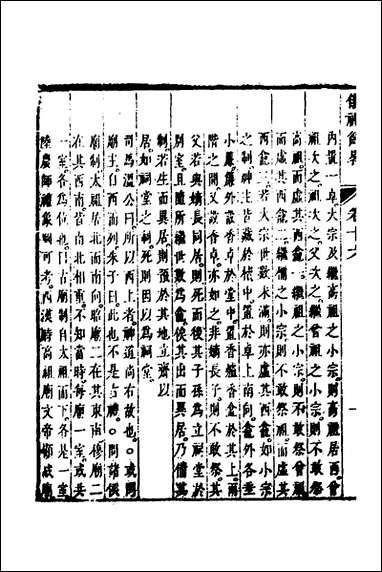 儀禮節畧 卷十六 一
内置一卓大宗及繼高祖之小宗則高祖居西曾
祖次之祖次之父次之繼曾祖之小宗則不敢祭
高祖而虛其西龕一繼祖之小宗則不敢祭曾祖
而虛其西龕二繼禰之小宗則不敢祭祖而虛其
西龕三若大宗世數未滿則亦虛其西龕如小宗
之制神主皆藏於櫝中置於卓上南向龕外各垂
小簾簾外設香卓於堂中置香爐香盒於其上兩
階之間又設香卓亦如之非嫡長子則不敢祭其
父若與嫡長同居則死而後其子孫為立祠堂於
私室且隨所繼世數為龕俟其出而異居乃備其
制若生而異居則預於其地立齋以
居如祠堂之制死則因以為祠堂
司馬溫公曰所以西上者神道尚右故也○或問
廟主自西而列朱子曰此也不是古禮○問諸侯
廟制太祖居北而南向昭廟二在其東南穆廟二
在其西南皆南北相重不知當時每廟一室或共
一室各為位也曰古廟制自太祖而下各是一室
陸農師禮象圖可考西漢時高祖廟文帝顧成廟